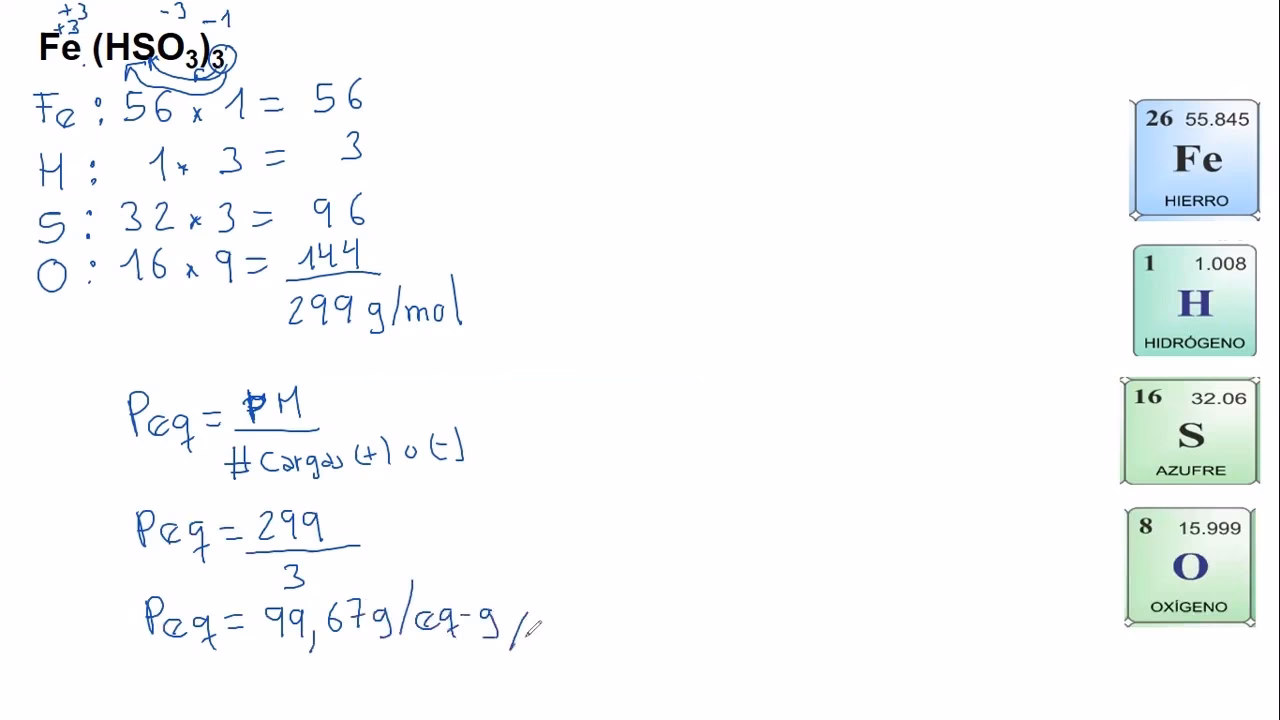 +3 -3 -1
+3
Fe (HSO₃)₃
Fe : 56 × 1 = 56
H : 1 × 3 = 3
S : 32 × 3 = 96
O : 16 × 9 = 144
299 g/mol
Peq = PM
# Cargas (+) o (-)
Peq = 299
3
Peq = 99,67 g/eq-g //
26 55.845
Fe
HIERRO
1 1.008
H
HIDRÓGENO
16 32.06
S
AZUFRE
8 15.999
O
OXÍGENO